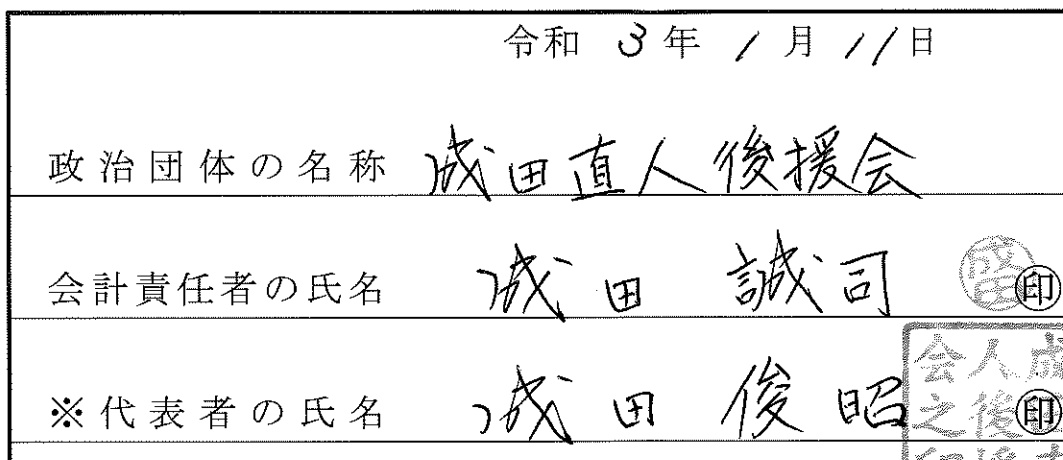 令和 3年 1月 11日
政治団体の名称 成田直人後援会
会計責任者の氏名 成田 誠司 成田 印
※代表者の氏名 成田 俊昭 印
会人成
之後